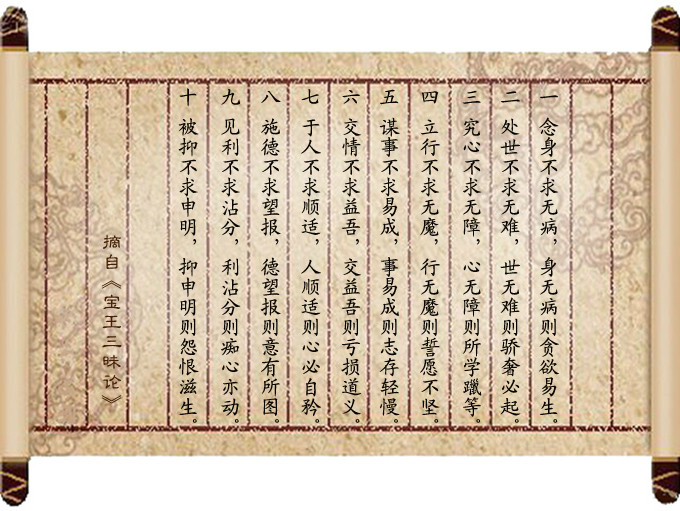 一 念身不求无病，身无病则贪欲易生。
二 处世不求无难，世无难则骄奢必起。
三 究心不求无障，心无障则所学躐等。
四 立行不求无魔，行无魔则誓愿不坚。
五 谋事不求易成，事易成则志存轻慢。
六 交情不求益吾，交益吾则亏损道义。
七 于人不求顺适，人顺适则心必自矜。
八 施德不求望报，德望报则意有所图。
九 见利不求沾分，利沾分则痴心亦动。
十 被抑不求申明，抑申明则怨恨滋生。
摘自《宝王三昧论》